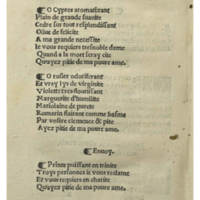 ¶ O Cypres aromatisant
Plain de grande suauite
Cedre sur tout resplendissant
Oliue de felicite
A ma grande necessite
Ie vous requiers treshonble dame
Quand a la mort seray cite
Quayez pitie de ma poure ame.
¶ O rosier odoriferant
Et vray lys de virginite
Violette tres flourissant
Marguerite d'humilite
Mariolaine de purete
Romarin flairant comme basme
Par vostre clemence & pite
Ayez pitie de ma poure ame.
¶ Enuoy.
¶ Prince puissant en trinite
Troys personnes ie vous reclame
Et vous requiers en charite
Quayez pitie de ma poure ame.